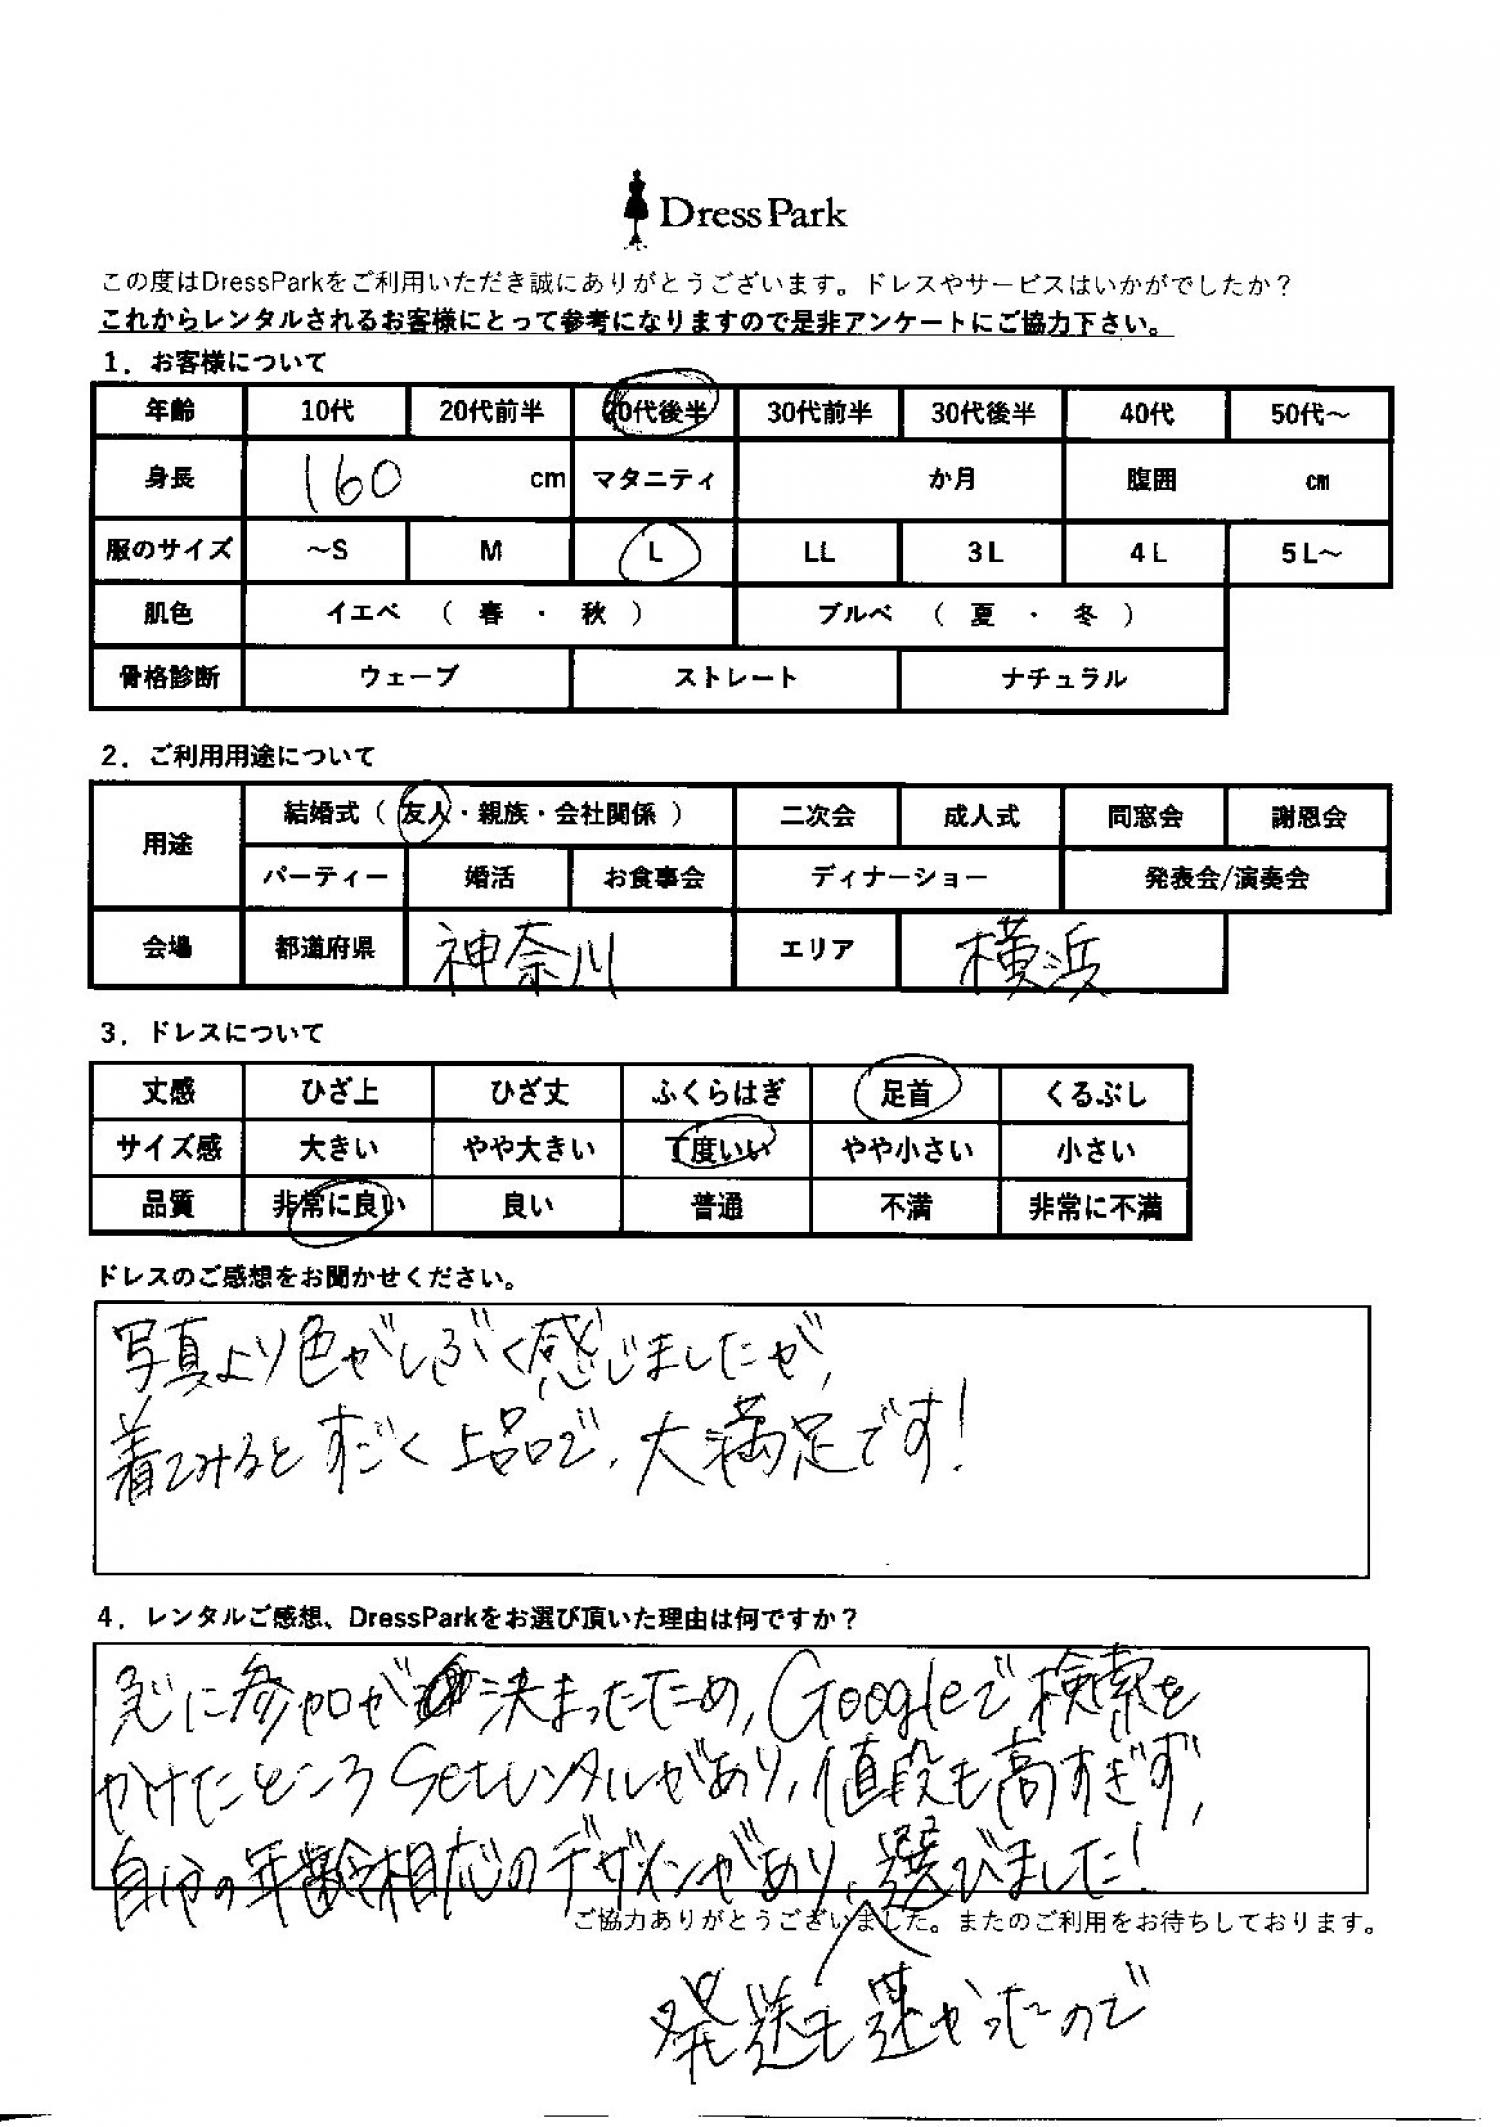 Dress Park
この度はDressParkをご利用いただき誠にありがとうございます。ドレスやサービスはいかがでしたか？
これからレンタルされるお客様にとって参考になりますので是非アンケートにご協力下さい。
1．お客様について
年齢 10代 20代前半 20代後半 30代前半 30代後半 40代 50代～
身長 160 cm マタニティ か月 腹囲 cm
服のサイズ ～S M L LL 3L 4L 5L～
肌色 イエベ （ 春 ・ 秋 ） ブルベ （ 夏 ・ 冬 ）
骨格診断 ウェーブ ストレート ナチュラル
2．ご利用用途について
用途 結婚式（ 友人・親族・会社関係 ） 二次会 成人式 同窓会 謝恩会
パーティー 婚活 お食事会 ディナーショー 発表会/演奏会
会場 都道府県 神奈川 エリア 横浜
3．ドレスについて
丈感 ひざ上 ひざ丈 ふくらはぎ 足首 くるぶし
サイズ感 大きい やや大きい 丁度いい やや小さい 小さい
品質 非常に良い 良い 普通 不満 非常に不満
ドレスのご感想をお聞かせください。
写真より色がしぶく感じましたが、
着てみるとすごく上品で、大満足です！
4．レンタルご感想、DressParkをお選び頂いた理由は何ですか？
急に参加が決まったため、Googleで検索を
かけたところSetレンタルがあり、値段も高すぎず、
自分の年齢相応のデザインがあり、選びました！
ご協力ありがとうございました。またのご利用をお待ちしております。
発送も速かったので